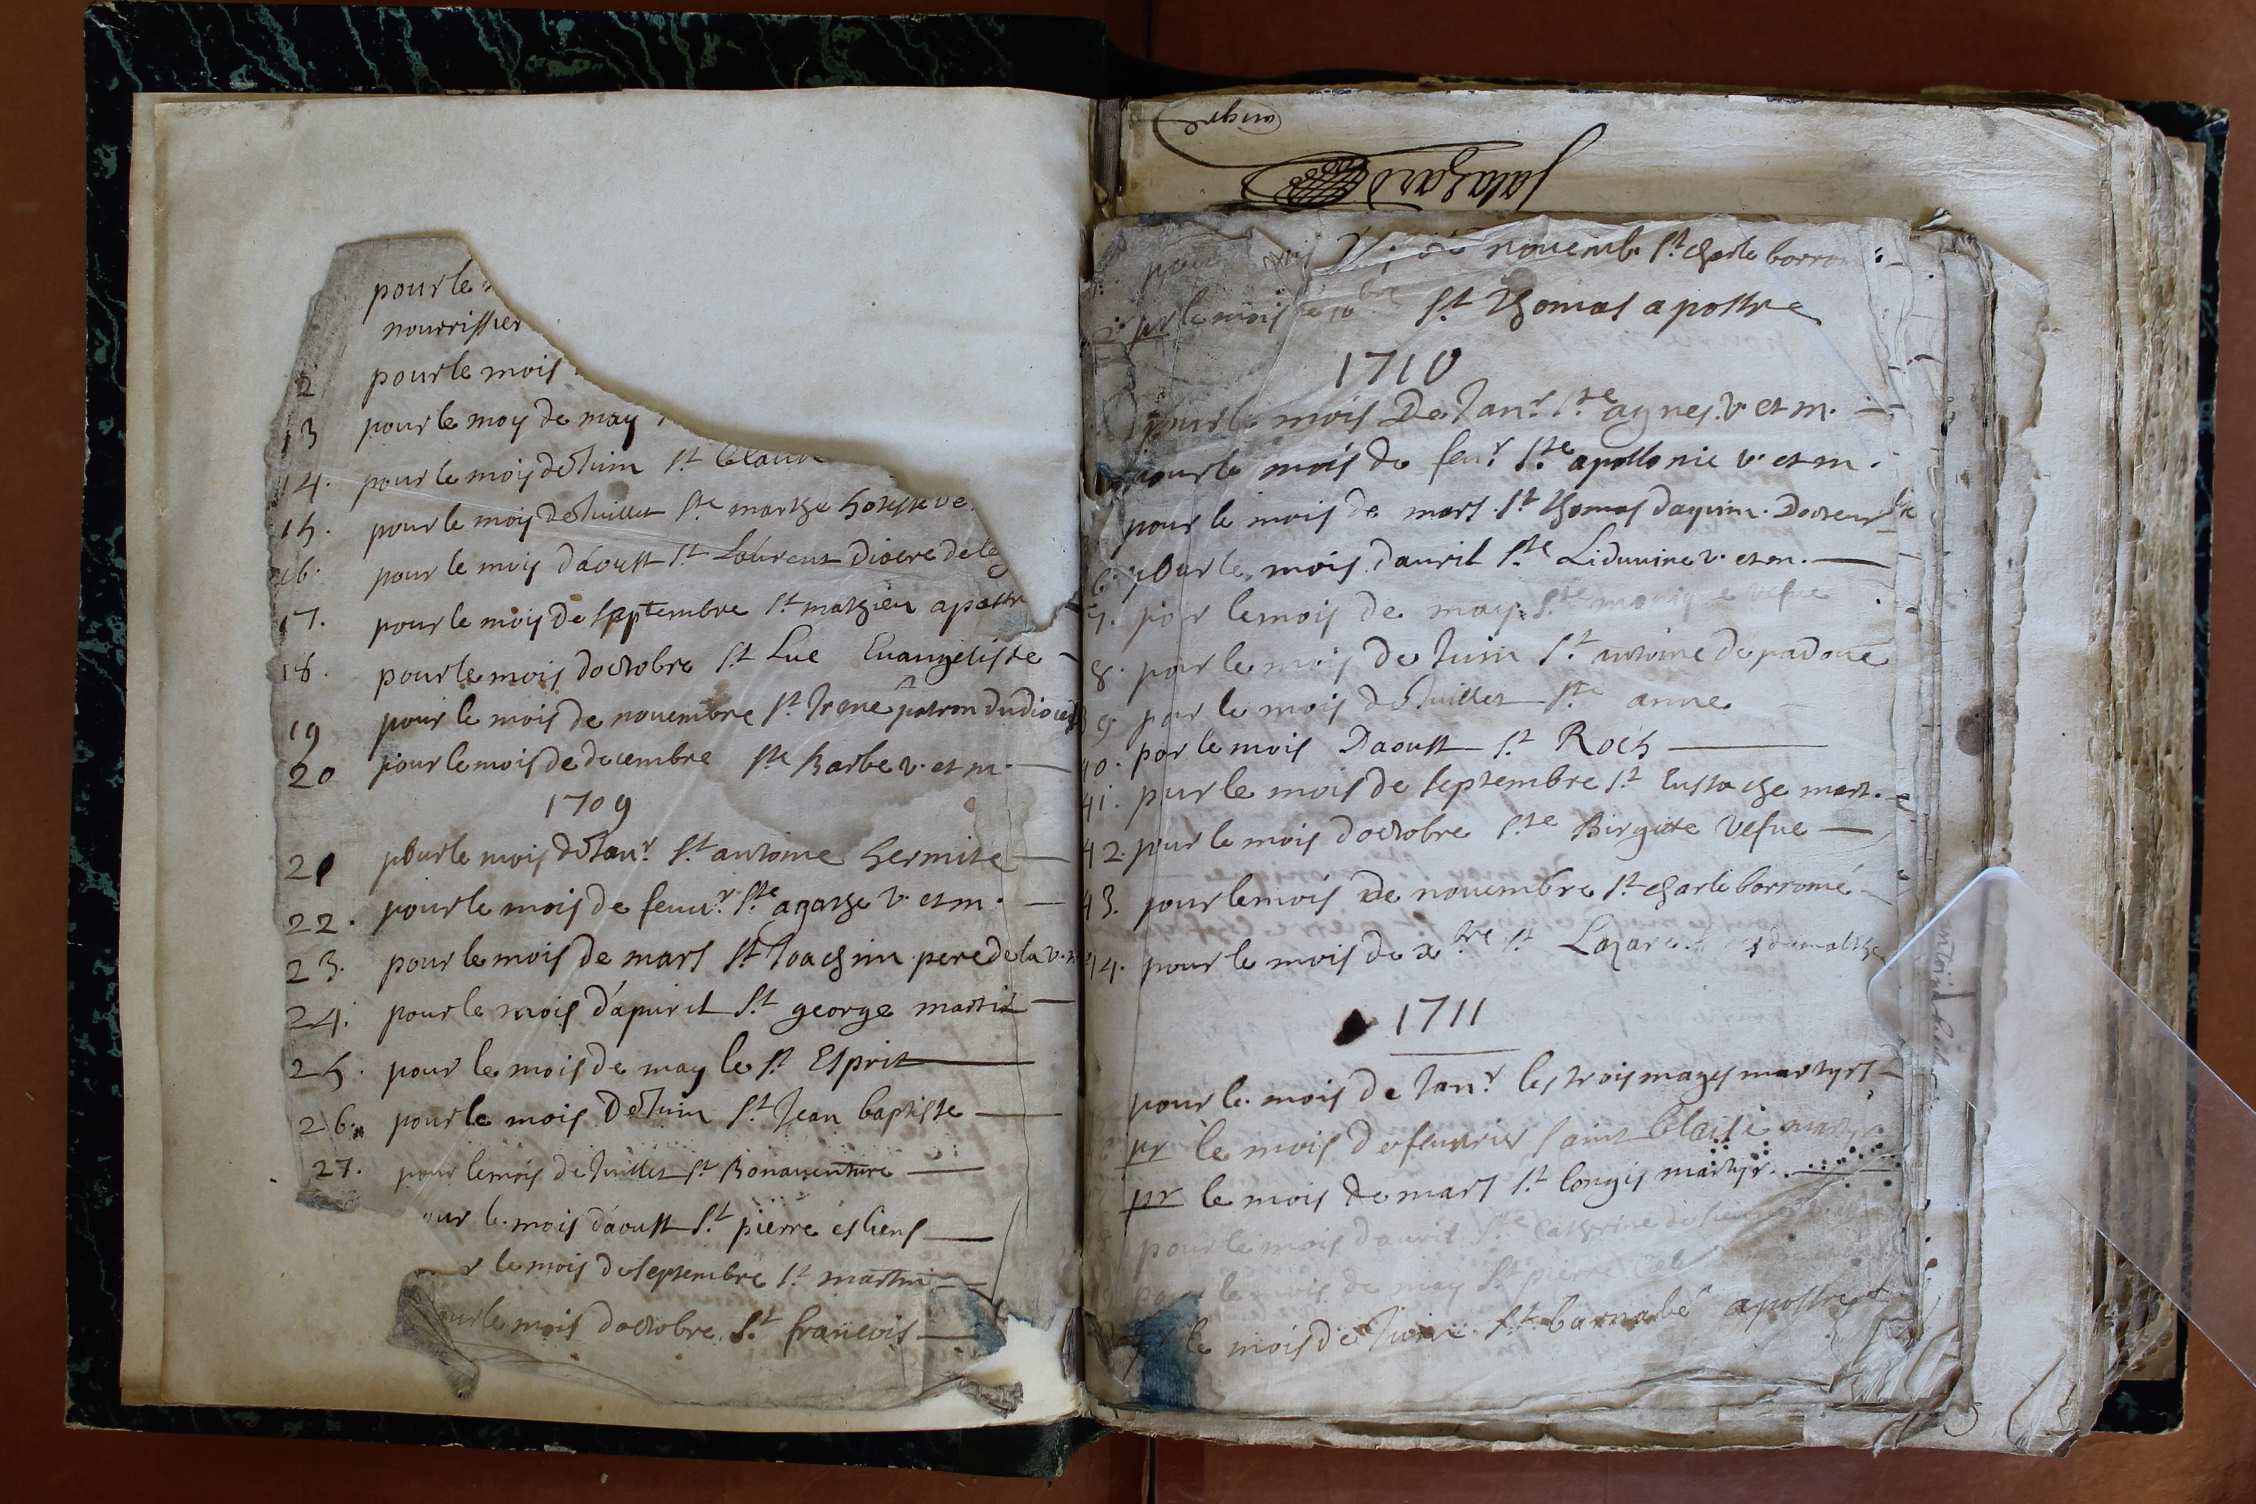 pour le
nourrissier
2 pour le mois
13 pour le moy de may
14. pour le mois de Juin St Claude
15. pour le mois de Juillet Ste marthe hotesse
16. pour le mois d'aoust St Laurent diacre
17. pour le mois de septembre St mathieu apostr
18. pour le mois doctobre St Luc Euangeliste
19 pour le mois de nouembre St Irene patron du
20 pour le mois de decembre Ste Barbe v. et m.
1709
21 pour le mois de Janr. St antoine hermite
22. pour le mois de feuur. Ste agathe v. et m.
23. pour le mois de mars St Joachim pere de la v.
24. pour le mois d'apuril St george martir
25. pour le mois de may le St Esprit
26. pour le mois de Juin St Jean baptiste
27. pour le mois de Juillet St Bonauenture
our le mois d'aoust St pierre es liens
r le mois de septembre St martin
our le mois doctobre St francois
angre
Salazard
nouemb. St charle borrom
pr le mois de St thomas apostre
1710
pour le mois De Janr. Ste agnes. v. et m.
pour le mois de feur. Ste apollonie v. et m.
pour le mois de mars. St thomas daquin. Docteur
6. pour le mois dauril Ste Liduuine v. et m.
7. pour le mois de may. Ste monique vefue
8. pour le mois de Juin St antoine de padoue
9. pour le mois de Juillet Ste anne
40. por le mois Daoust St Roch
41. pour le mois de septembre St Eustache mart.
42. pour le mois doctobre Ste Birgitte vefue
43. pour le mois de nouembre St charle borromé
44. pour le mois de xbre St Lazare
1711
pour le mois de Janr les trois mages martyrs
pr le mois de feuurier saint blaise martyr
pr le mois de mars St longis martyr.
pour le mois dauril Ste Catherine de
pour le mois de may St pierre
le mois de Juin St barnabé apostre